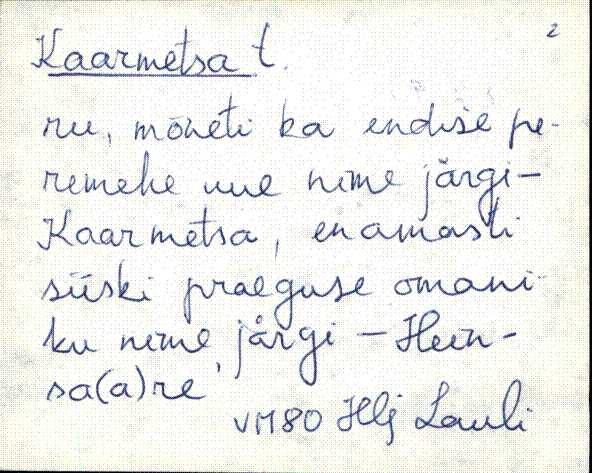 2
Kaarmetsa t.
ru, mõneti ka endise pe-
remehe uue nime järgi -
Kaarmetsa, enamasti
siiski praeguse omani-
ku nime järgi - Hein-
sa(a)re
VM80 Hlj Lauli